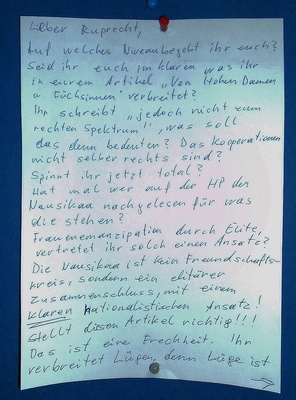 Lieber Ruprecht,
Auf welches Niveau begebt ihr euch?
Seid ihr euch im klaren was ihr
in eurem Artikel „Von Hohen Damen
u. Füchsinnen" verbreitet?
Ihr schreibt „jedoch nicht zum
rechten Spektrum", was soll
das denn bedeuten? Das Kooperationen
nicht selber rechts sind?
Spinnt ihr jetzt total?
Hat mal wer auf der HP der
Nausikaa nachgelesen für was
die stehen?
Frauenemanzipation durch Elite,
vertretet ihr solch einen Ansatz?
Die Nausikaa ist kein Freundschafts-
kreis, sondern ein elitärer
Zusammenschluss, mit einem
klaren nationalistischen Ansatz!
Stellt diesen Artikel richtig!!!
Das ist eine Frechheit. Ihr
verbreitet Lügen, denn Lüge ist
→